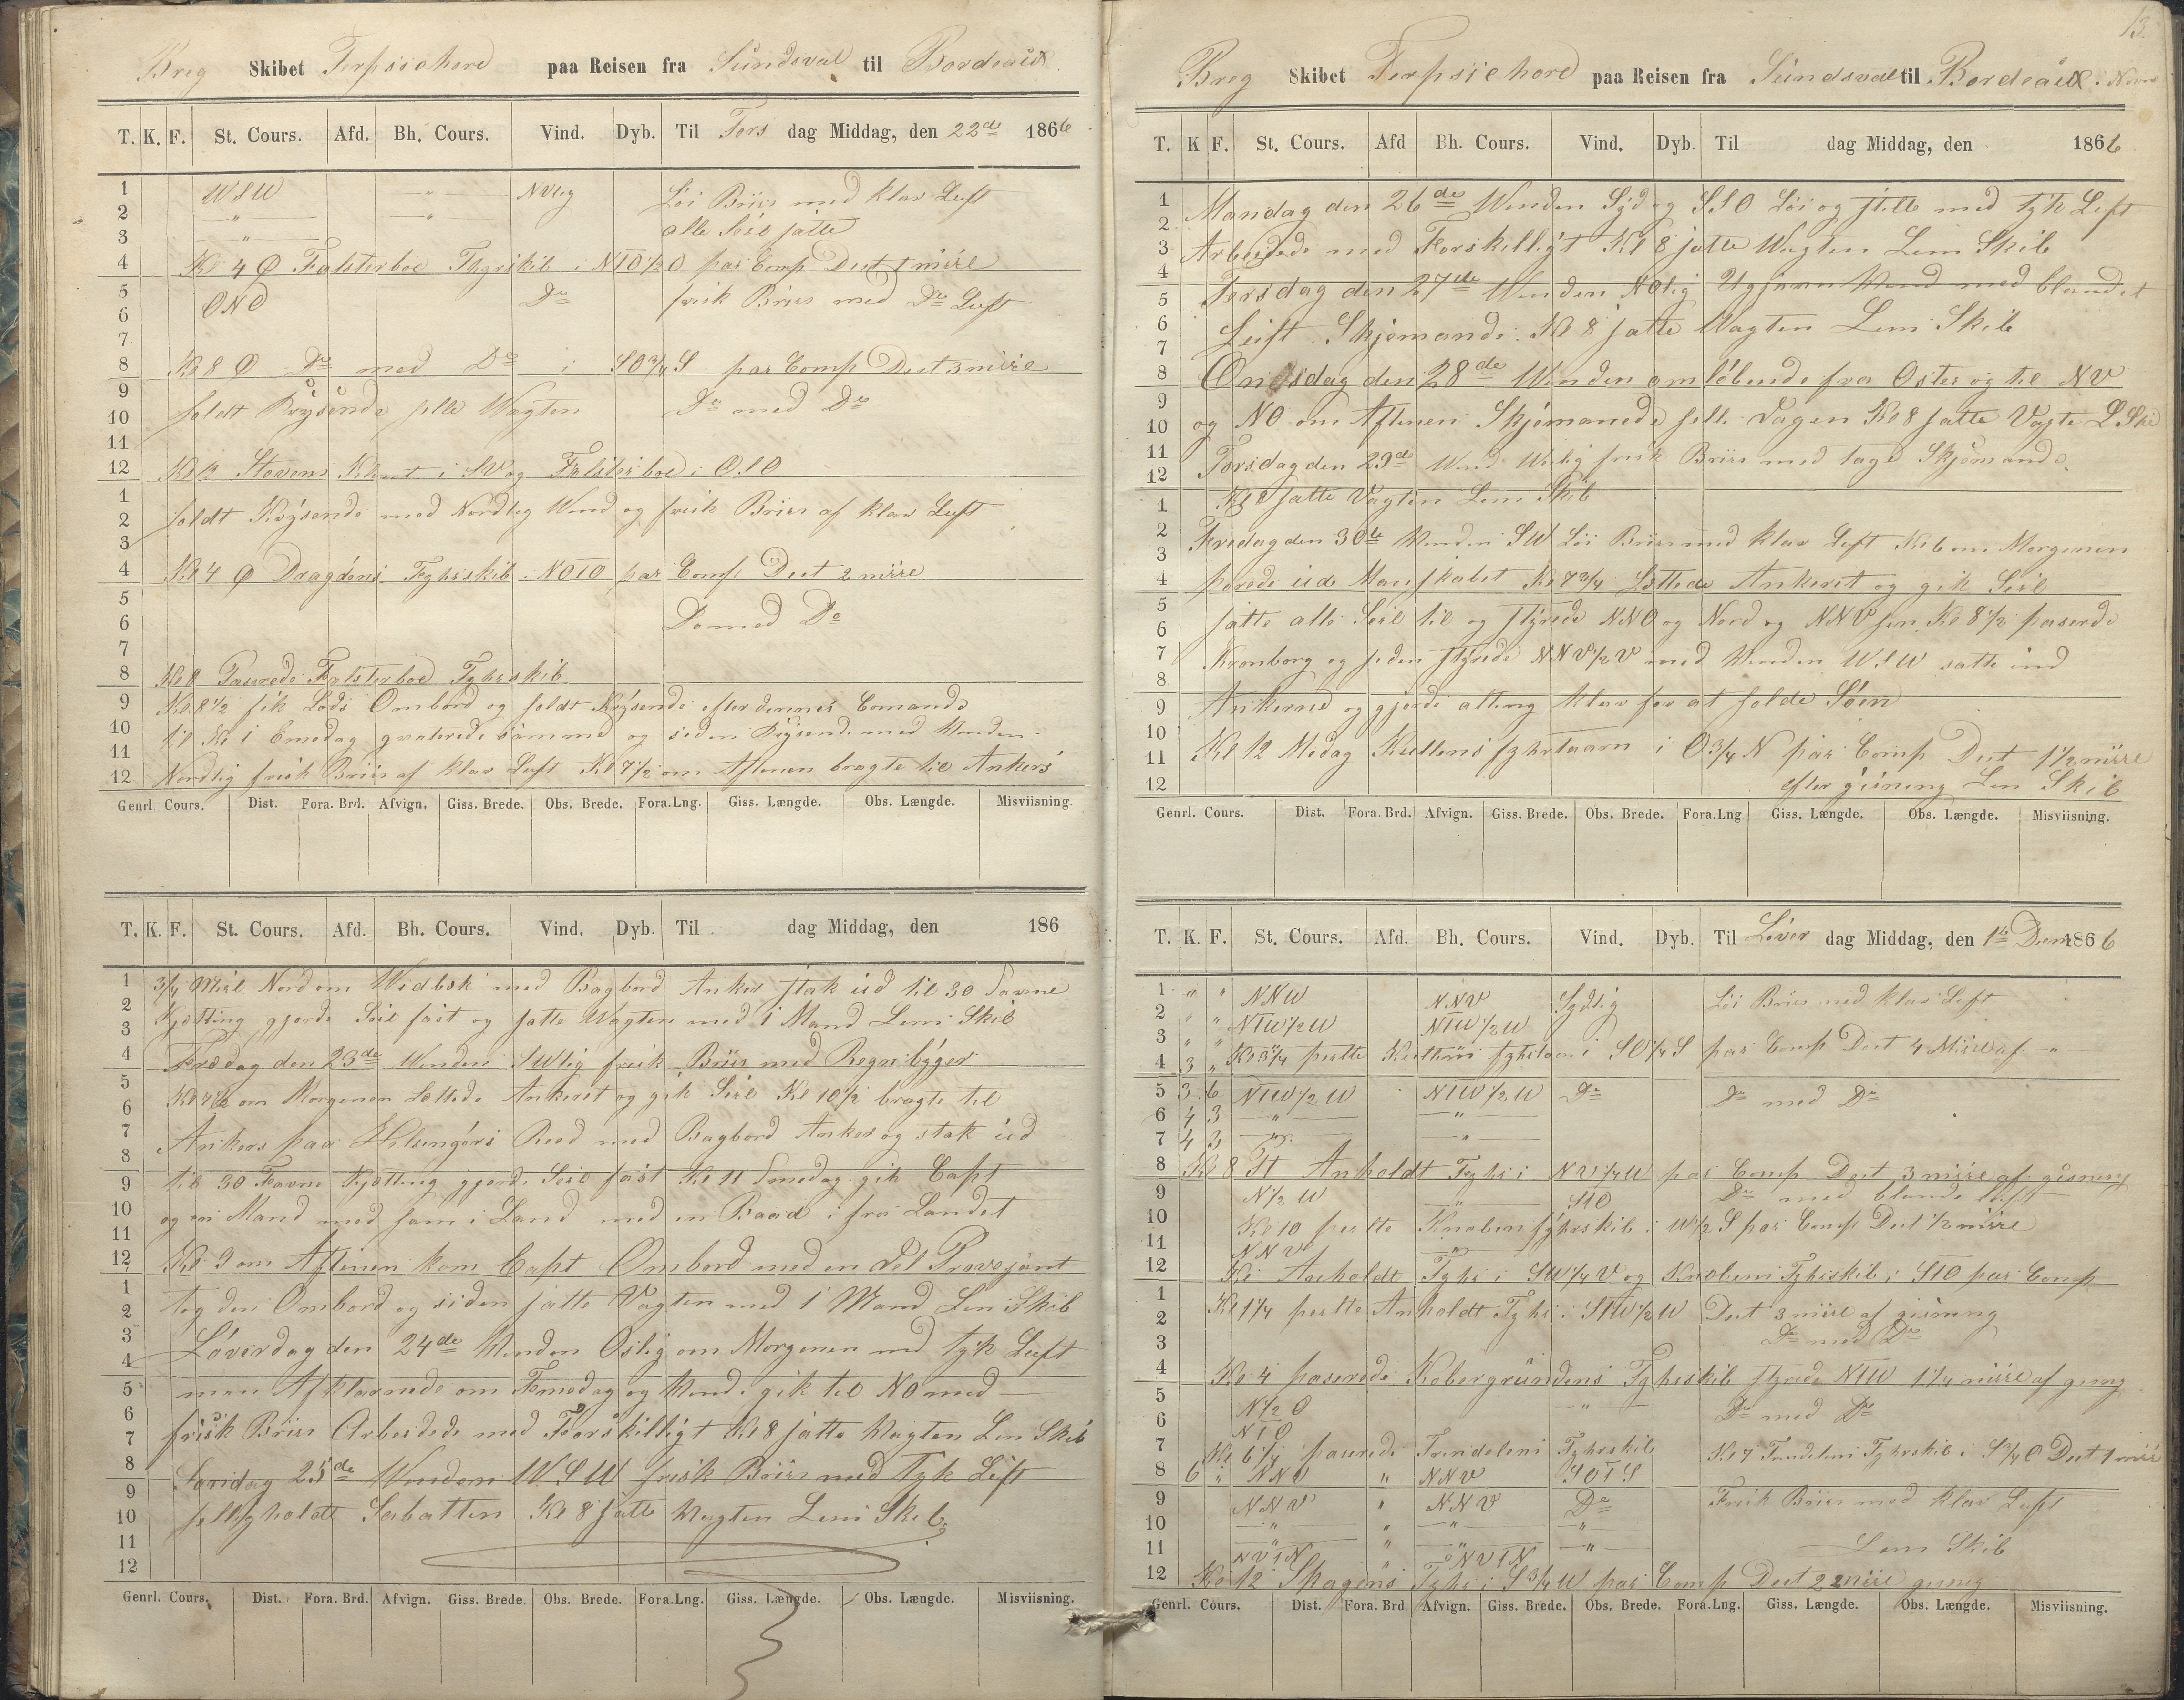 Breg Skibet Terpsichore paa Reisen fra Sundsval til Bordeaux
T. K. F. St. Cours. Afd. Bh. Cours. Vind. Dyb. Til Tors dag Middag, den 22de 1866
1 WSW " NVlig Löi Briis med klar Luft
2 " " alle Seil satte
3 "
4 Kl 4 Falsterboe Fhyrskib i NTO½O par Comp Dist 1 mile
5 ONO Do frisk Briis med Do Luft
6
7
8 Kl 8 Do med Do i SO¾S par Comp Dist 3 mile
9 holdt Krysende hele Wagten Do med Do
10
11
12 Kl 12 Stevens Klint i SV og Falsterboe i OSO
1 holdt Krysende med Nordlig Wind og frisk Briis af klar Luft
2
3
4 Kl 4 Dragöens Fyhrskib NOTO par Comp Dist 2 mile
5 Do med Do
6
7
8 Kl 8 Paserede Falsterboe Fyhrskib
9 Kl 8½ fik Lods Ombord og holdt Krysende efter dennes Comando
10 til Kl 1 Emedag qvaterede samme og siden Krysende med Wenden
11 Nordlig frisk Briis af klar Luft Kl 7½ om Aftenen bragte til Ankers
12
Genrl. Cours. Dist. Fora. Brd. Afvign. Giss. Brede. Obs. Brede. Fora.Lng. Giss. Længde. Obs. Længde. Misviisning.
T. K. F. St. Cours. Afd. Bh. Cours. Vind. Dyb. Til dag Middag, den 186
1 ¾ Miil Nord om Widbek med Bagbord Anker stak ud til 30 Favne
2 Kjetting gjorde Seil fast og satte Wagten med 1 Mand Lens Skib
3
4 Fredag den 23de Wenden SWlig frisk Briis med Regnbyger
5 Kl 7½ om Morgenen Lettede Ankeret og gik Seil Kl 10½ bragte til
6
7 Ankers paa Helsingörs Reed med Bagbord Anker og stak ud
8
9 til 30 Favne Kjetting gjorde Seil fast Kl 11 Fmedag gik Capt
10 og en Mand med ham i Land med en Baad i fra Landet
11
12 Kl 9 om Aftenen kom Capt Ombord med en del Provejant
1 tog den Ombord og siden satte Vagten med 1 Mand Len Skib
2
3 Löverdag den 24de Wenden Oslig om Morgenen med tyk Luft
4
5 men Afklarnede om Femedag og Wend gik til NO med
6
7 frisk Briis Arbeidede med Forskilligt Kl 8 satte Wagten Len Skib
8 Söndag 25de Wenden WSW frisk Briis med Tyk Luft
9
10 helligholdt Sabatten Kl 8 satte Wagten Lens Skib
11
12
Genrl. Cours. Dist. Fora. Brd. Afvign. Giss. Brede. Obs. Brede. Fora.Lng. Giss. Længde. Obs. Længde. Misviisning.
13.
Breg Skibet Terpsichore paa Reisen fra Sundsval til Bordeaux
T. K F. St. Cours. Afd Bh. Cours. Vind. Dyb. Til dag Middag, den 1866
1 Mandag den 26de Wenden Syd og SSO Löi og stille med tyk Luft
2
3 Arbeidede med Forskilligt Kl 8 satte Wagten Lens Skib
4
5 Tersdag den 27de Wenden NOlig Ugjevn Wend med blandet
6
7 Luft. Skjemande. Kl 8 satte Wagten Lens Skib
8 Onsdag den 28de Wenden omlöbende fra Oster og til NV
9
10 og NO om Aftenen Skjemanede hele Dagen Kl 8 satte Vagte L Ski
11 Torsdag den 29de Wend Weslig frisk Briis med tage Skjemande
12
1 Kl 8 satte Vagten Lens Skib
2 Fredag den 30te Wenden SW Löi Briis med klar Luft Kl 6 om Morgenen
3
4 porede ud Manskabet Kl 7¾ Lettede Ankeret og gik Seil
5 satte alle Seil til og styrede NNO og Nord og NNV hen Kl 8½ paserde
6
7 Kronborg og siden styrede NNV½V med Wenden WSW satte ind
8
9 Ankerne og gjorde alting klar for at holde Söen
10
11 Kl 12 Medag Kullens fyhrtaarn i O¾N par Comp Dist 1½ mile
12 efter gisning Len Skib
Genrl. Cours. Dist. Fora. Brd. Afvign. Giss. Brede. Obs. Brede. Fora.Lng Giss. Længde. Obs. Længde. Misviisning.
T. K. F. St. Cours. Afd. Bh. Cours. Vind. Dyb. Til Löver dag Middag, den 1ste Decm 1866
1 " " NNW NNV Sydlig Löi Briis med klar Luft
2 " " NTW½W NTW½W
3 " " Kl 3¼ peilte Kullens fyhrtaarn i SO¼S par Comp Dist 4 Mile af
4 3 "
5 3 6 NTW½W NTW½W Do Do med Do
6 4 3 " "
7 4 3 " "
8 Kl 8 St Anholdt Fyhr i NV¼W par Comp Dist 3 mile af gisning
9 N½W " STO Do med blande luft
10 Kl 10 peilte Knoben fyhrskib i W½S par Comp Dist ½ mile
11 NNV "
12 Kl Anholdt Fyhr i SW¼V og Knobens Fyhrskib i STO par Comp
1 Kl 1¼ peilte Anholdt Fyhr i STW½W Dist 3 mile af gisning
2 Do med Do
3
4 Kl 4 paserede Kobergrundens Fyhrskib styrede NTW 1¼ mile af gisng
5 N½O " Do med Do
6 NTO
7 Kl 6¼ paserede Trindelens Fyhrskib Kl 7 Trindelens Fyhrskib i S¾O Dist 1 mile
8 6 " NNV " NNV SOTS
9 NNV " NNV Do Frisk Briis med klar Luft
10 " " " "
11 " " " " Lens Skib
NVTN " NVTN
12 Kl 12 Skagens Fyhr i S¾W par Comp Dist 2 mile gisnig
Genrl. Cours. Dist. Fora. Brd. Afvign. Giss. Brede. Obs. Brede. Fora.Lng. Giss. Længde. Obs. Længde. Misviisning.